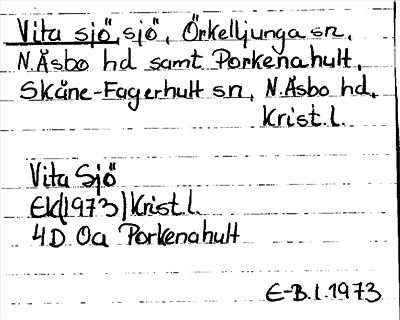 Vita sjö, sjö, Örkelljunga sn,
N. Åsbo hd samt Porkenahult,
Skåne-Fagerhult sn, N. Åsbo hd,
Krist. l.
Vita Sjö
EK(1973) Krist. l.
4D Oa Porkenahult
E-B. l. 1973